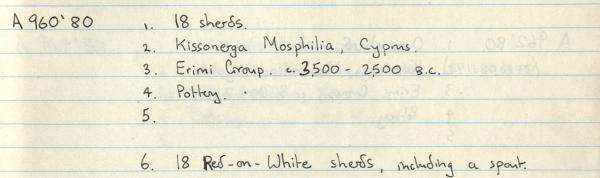 A 960'80 1. 18 sherds.
2. Kissonerga Mosphilia, Cyprus.
3. Erimi Group. c. 3,500 - 2,500 B.C.
4. Pottery.
5.
6. 18 Red-on-White sherds, including a spout.